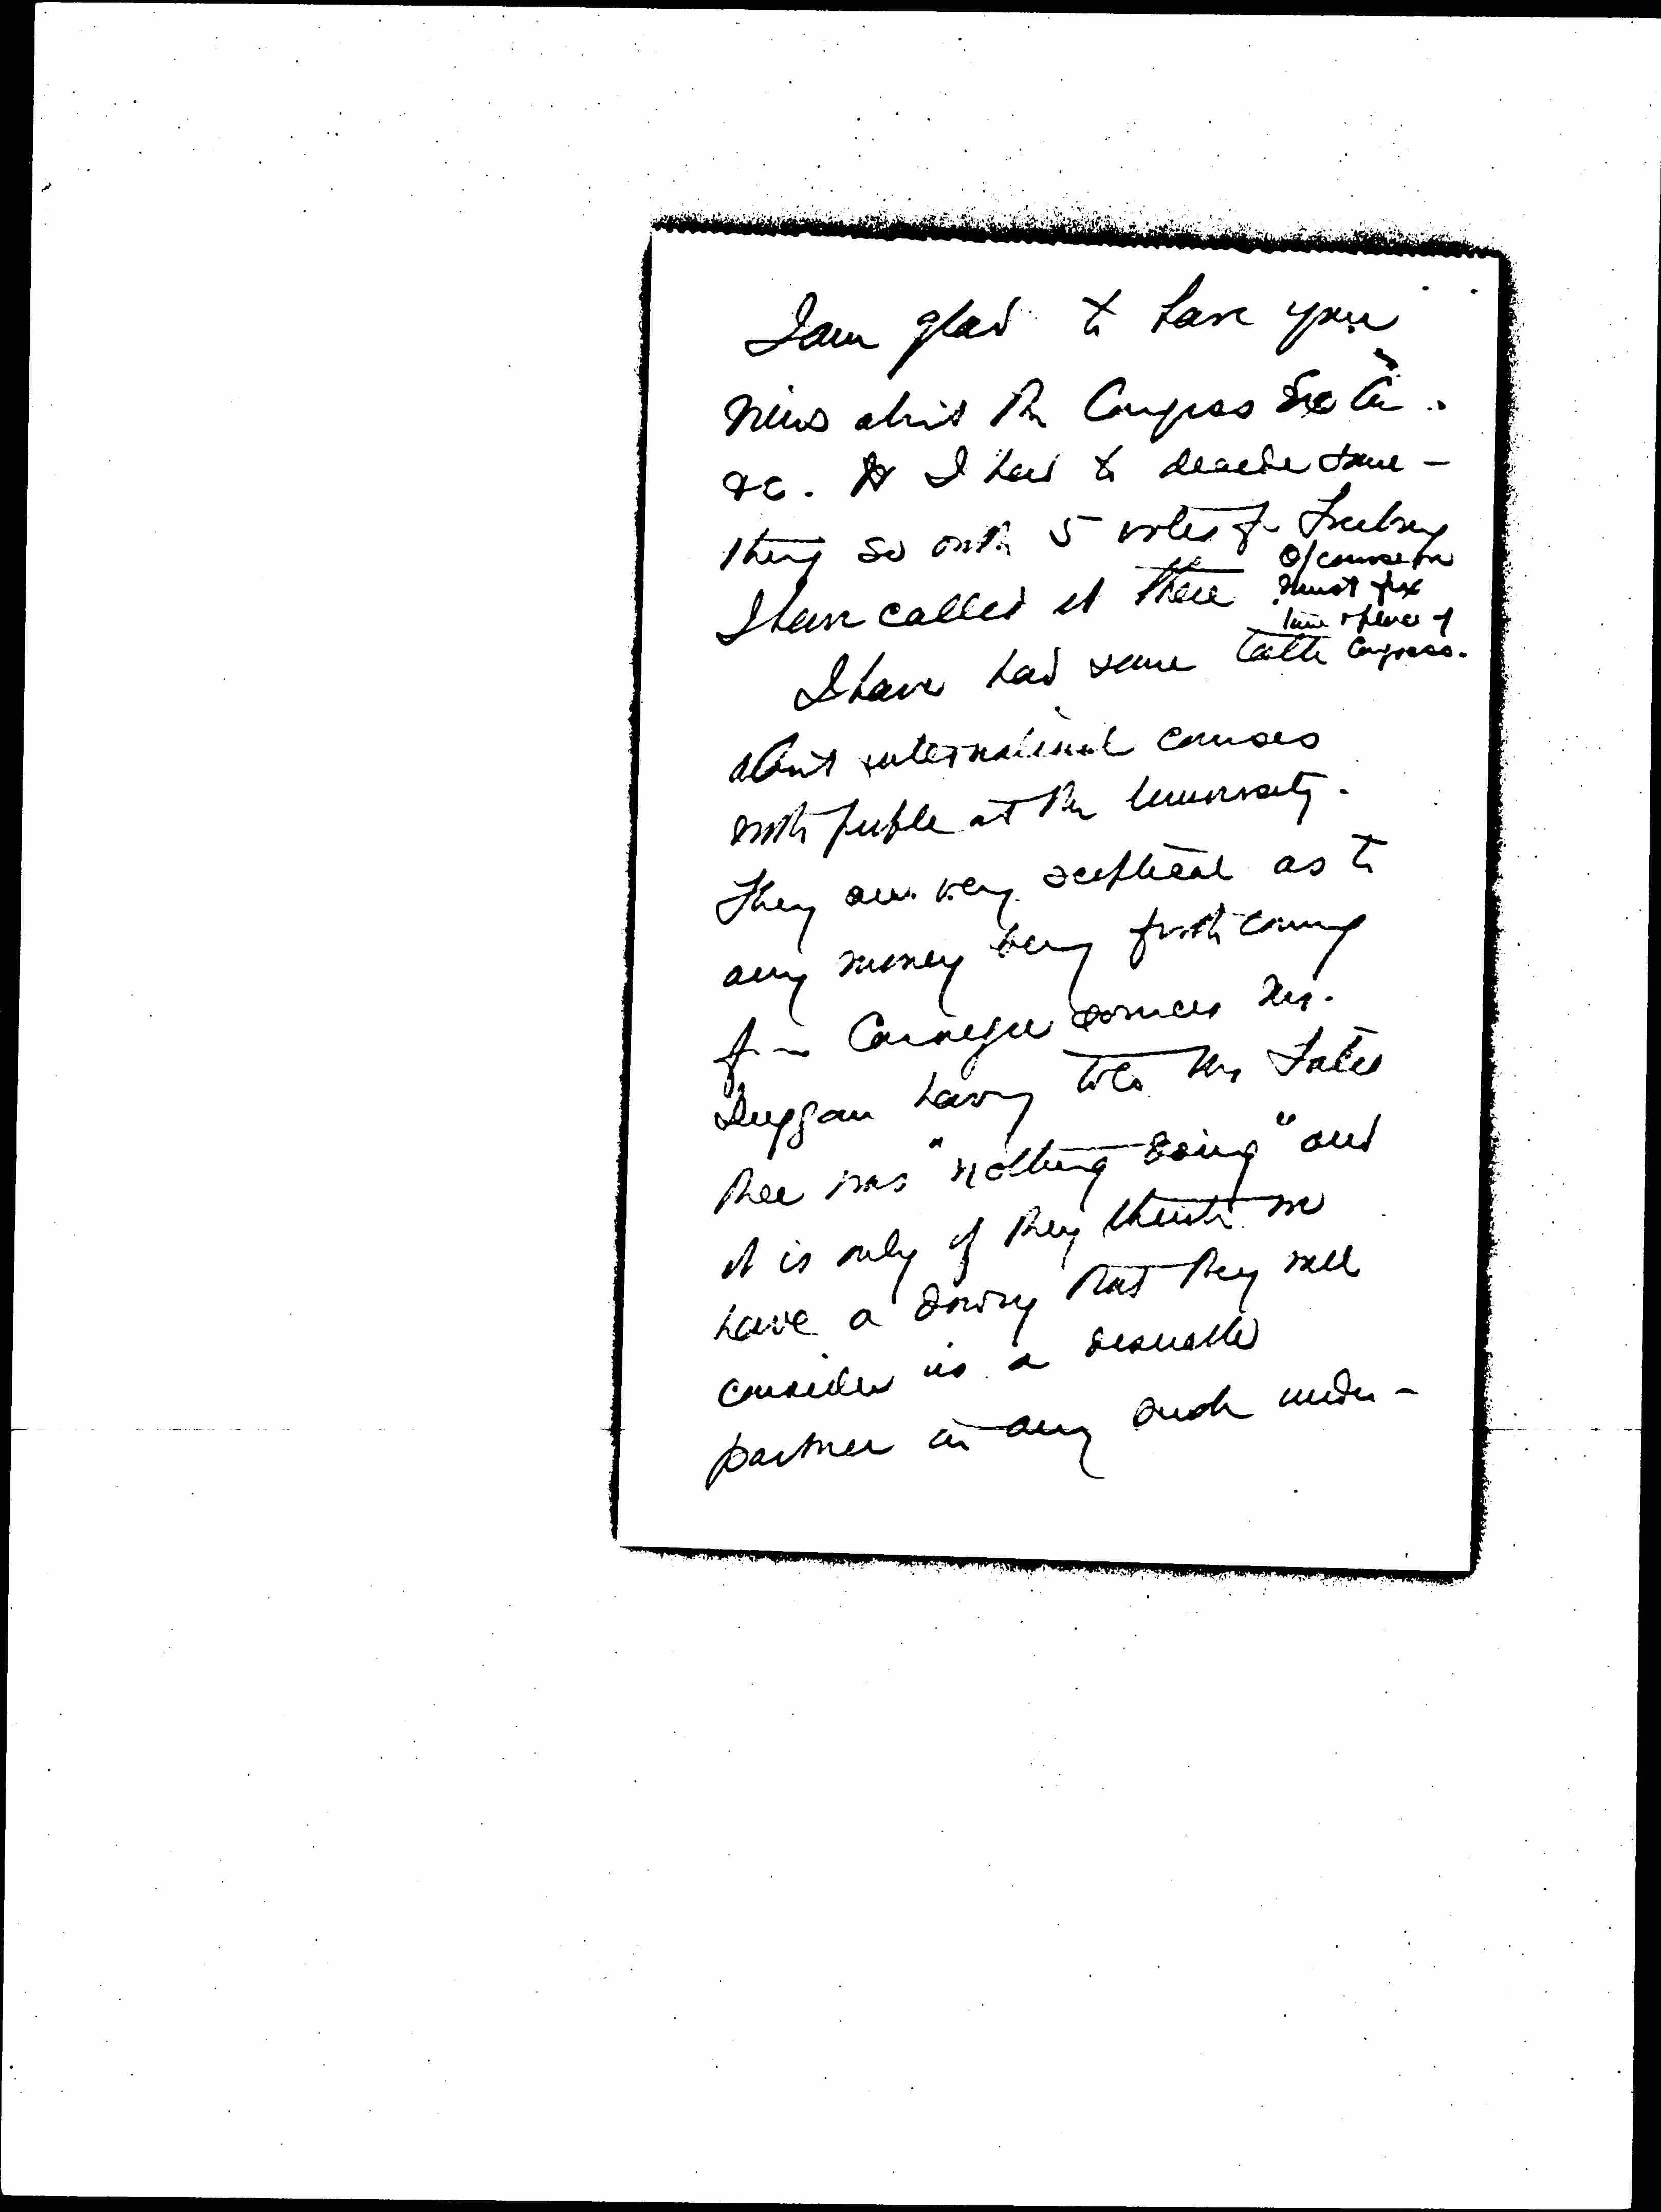 I am glad to have your
news about the Congress Exec Cu..
&c. I had to decide some-
thing so with 5 votes for Freiburg
I have called it there
Of course we
must fix
time & place of
Congress.
I have had some talk
about international courses
with people at the University.
They are very sceptical as to
any money being forthcoming
from Carnegie sources Mr.
Duggan having told Mr
there was "nothing doing" and
it is only if they think we
have a dowry that they will
consider us a desirable
partner in any such under-